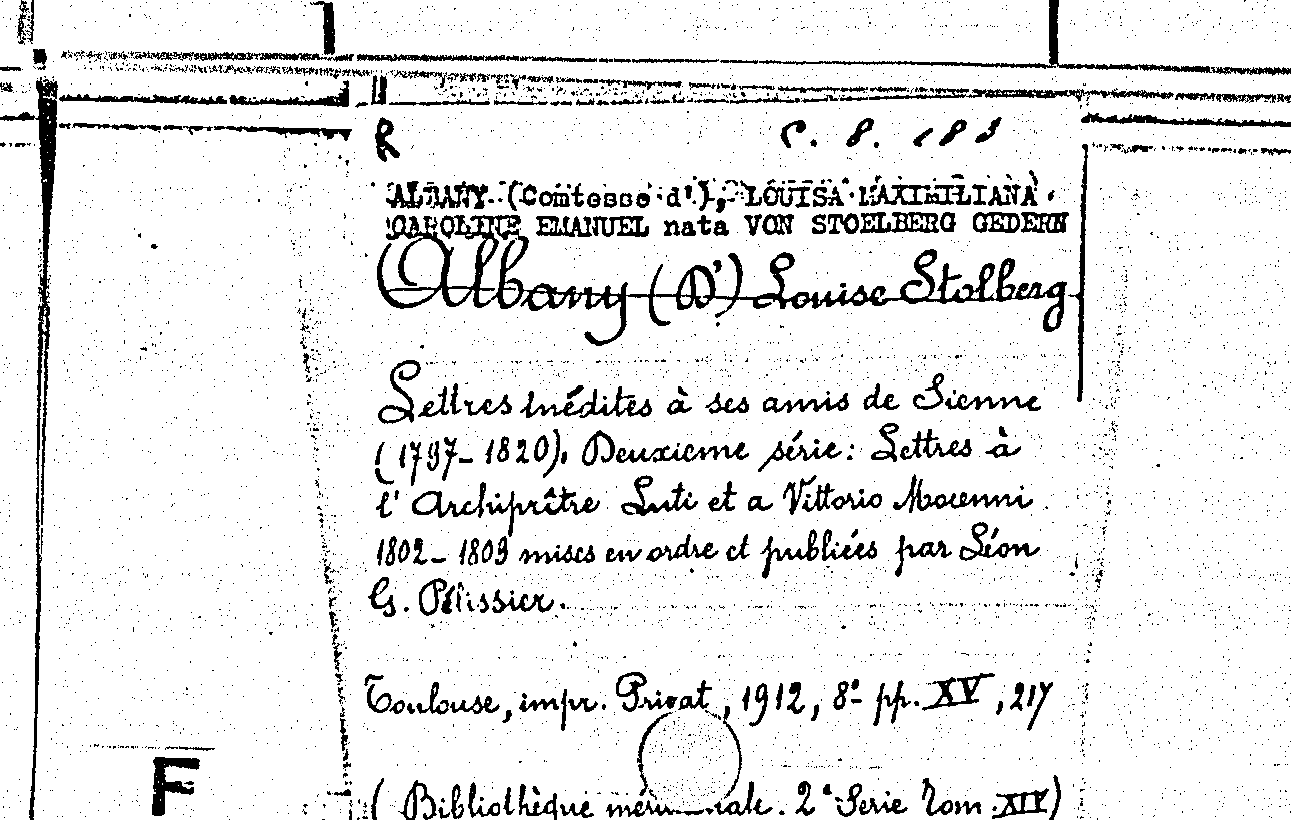 R C. 8. 183
ALBANY (Comtesse d'), LOUISA MAXIMILIANA
CAROLINE EMANUEL nata VON STOELBERG GEDERN
Albany (D') Louise Stolberg
Lettres inédites à ses amis de Sienne
(1797-1820). Deuxieme série: Lettres à
l'Archiprître Luti et a Vittorio Mocenni
1802-1809 mises en ordre et publiées par Léon
G. Pélissier.
Toulouse, impr. Privat, 1912, 8° pp. XV, 217
F
(Bibliothèque 2e Serie Tom XIV)